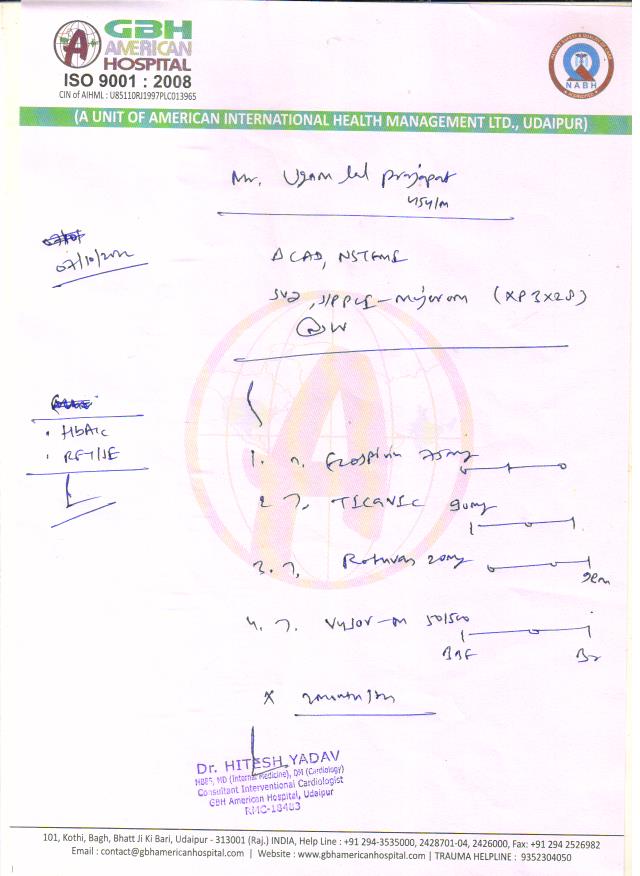 GBH
AMERICAN
HOSPITAL
ISO 9001 : 2008
CIN of AIHML : U85110RJ1997PLC013965
NABH
(A UNIT OF AMERICAN INTERNATIONAL HEALTH MANAGEMENT LTD., UDAIPUR)
Mr. Ugam lal Prajapat
45y/m
07/10/2022
Δ CAD, NSTEMI
SVD, S/P PCI - Mj or om (XP 3x28)
• HbA1c
• RFT/SE
1. T. Ecosprin 75mg
2. T. TICANIC 90mg
3. T. Rotuvas 20mg
9pm
4. T. Vysov-M 50/500
BBF
X 2 month
Dr. HITESH YADAV
MBBS, MD (Internal Medicine), DM (Cardiology)
Consultant Interventional Cardiologist
GBH American Hospital, Udaipur
RMC-18483
101, Kothi, Bagh, Bhatt Ji Ki Bari, Udaipur - 313001 (Raj.) INDIA, Help Line : +91 294-3535000, 2428701-04, 2426000, Fax: +91 294 2526982
Email : contact@gbhamericanhospital.com | Website : www.gbhamericanhospital.com | TRAUMA HELPLINE : 9352304050